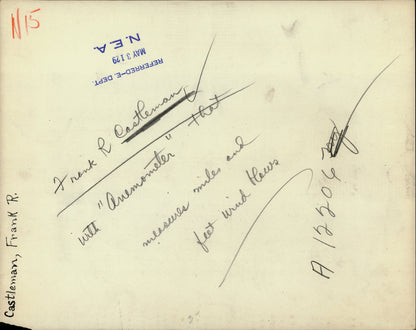 N15
N.E.A.
MAY 31 29
REFERRED-E. DEPT
Frank R Castleman,
with "Anemometer" that
measures miles and
feet wind blows
A 12206
Castleman, Frank R.